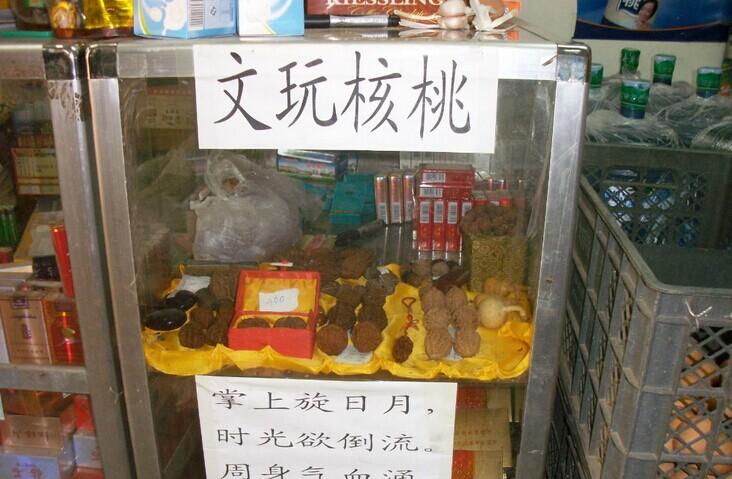 KIESSLING
文玩核桃
400
掌上旋日月,
时光欲倒流。
周身气血涌